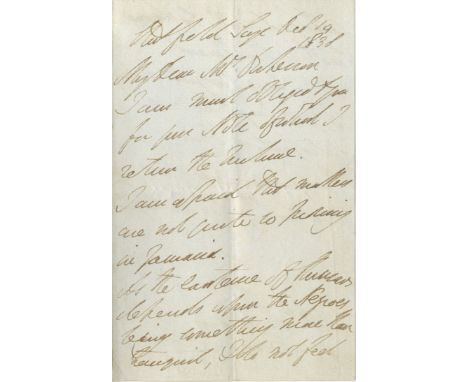 Strathfield Saye Dec 19
1838
My Dear Mr
I am much obliged to you
for your Note of which I
return the enclosure.
I am afraid that matters
are not quite so
in Jamaica.
As the existence of
depends upon the Negroes
being something more than
tranquil, I do not feel